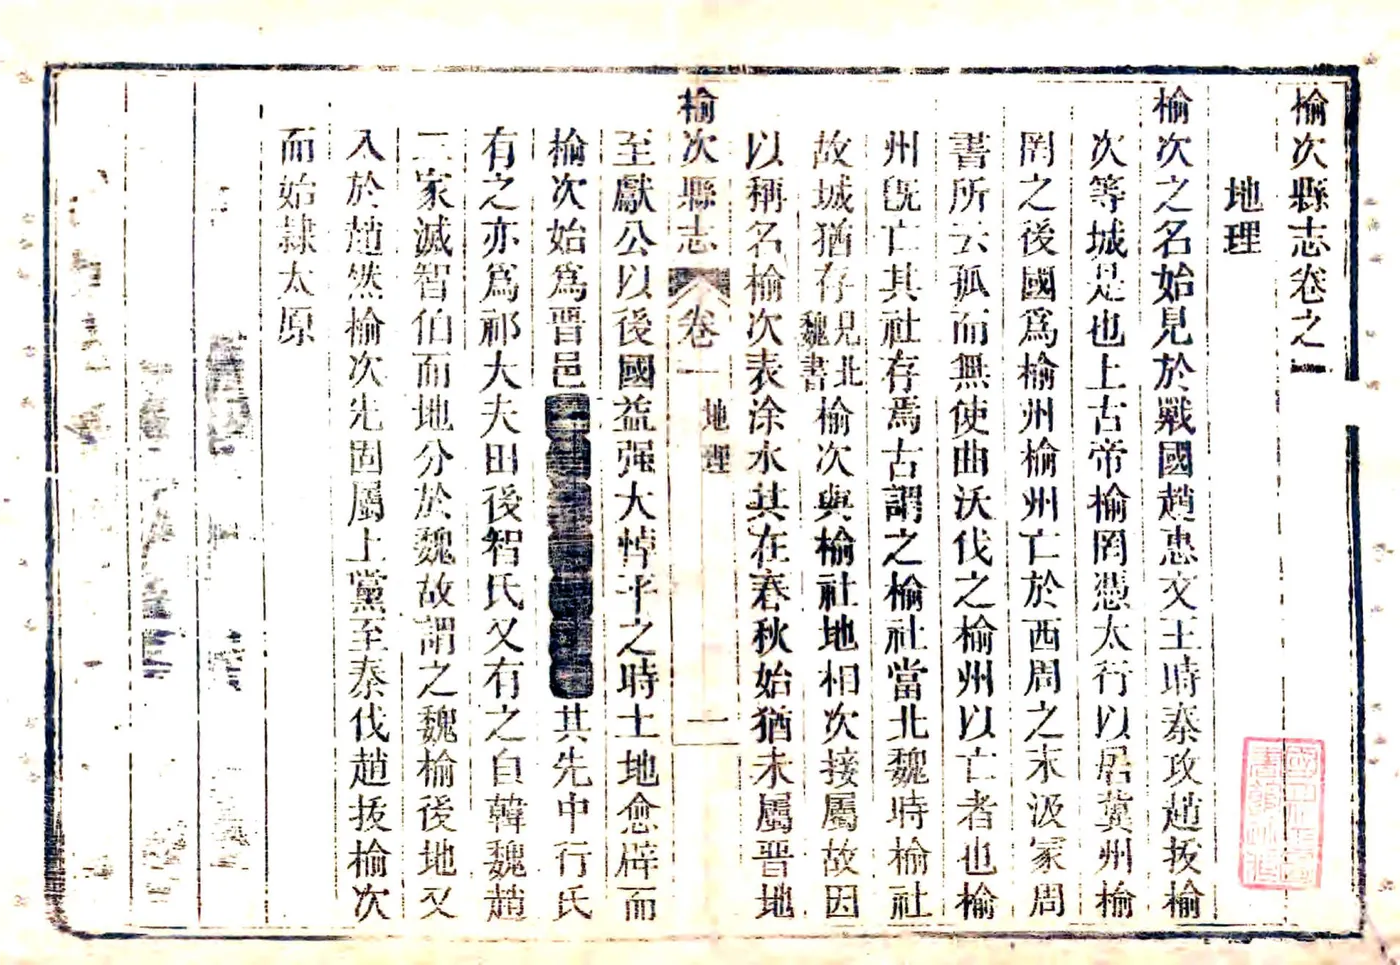 榆次縣志卷之一
地理
榆次之名始見於戰國趙惠文王時秦攻趙拔榆
次等城是也上古帝榆罔憑太行以居冀州榆
罔之後國爲榆州榆州亡於西周之末汲冢周
書所云孤而無使曲沃伐之榆州以亡者也榆
州旣亡其社存焉古謂之榆社當北魏時榆社
故城猶存見北魏書榆次與榆社地相次接屬故因
以稱名榆次表涂水其在春秋始猶未屬晋地
榆次縣志 卷一 地理 一
至獻公以後國益强大悼平之時土地愈辟而
榆次始爲晋邑
其先中行氏
有之亦爲祁大夫田後智氏又有之自韓魏趙
三家滅智伯而地分於魏故謂之魏榆後地又
入於趙然榆次先固屬上黨至秦伐趙拔榆次
而始隸太原